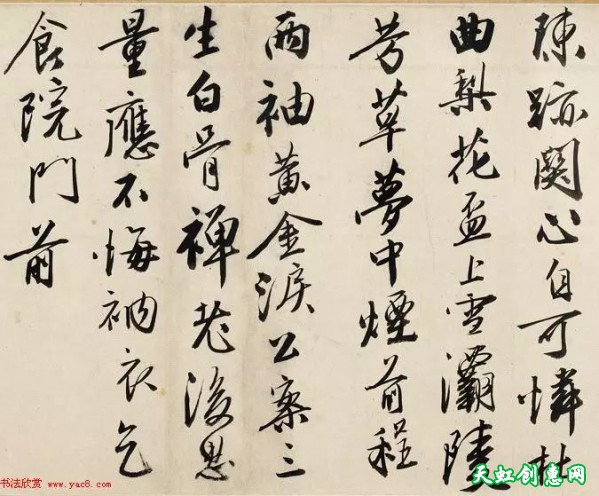 陳跡關心自可憐杜
曲梨花盃上雪灞陵
芳草夢中煙前程
兩袖黃金淚公案三
生白骨禪老後思
量應不悔衲衣乞
食院門前
书法欣赏 www.yac8.com
天虹创意网